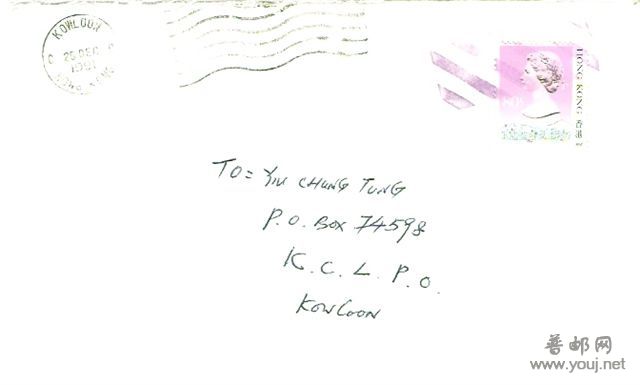 KOWLOON
HONG KONG
80¢
HONG KONG 香港
TO= YIU CHUNG TUNG
P.O. BOX 74598
K.C.L.P.O.
KOWLOON
普邮网
www.youj.net